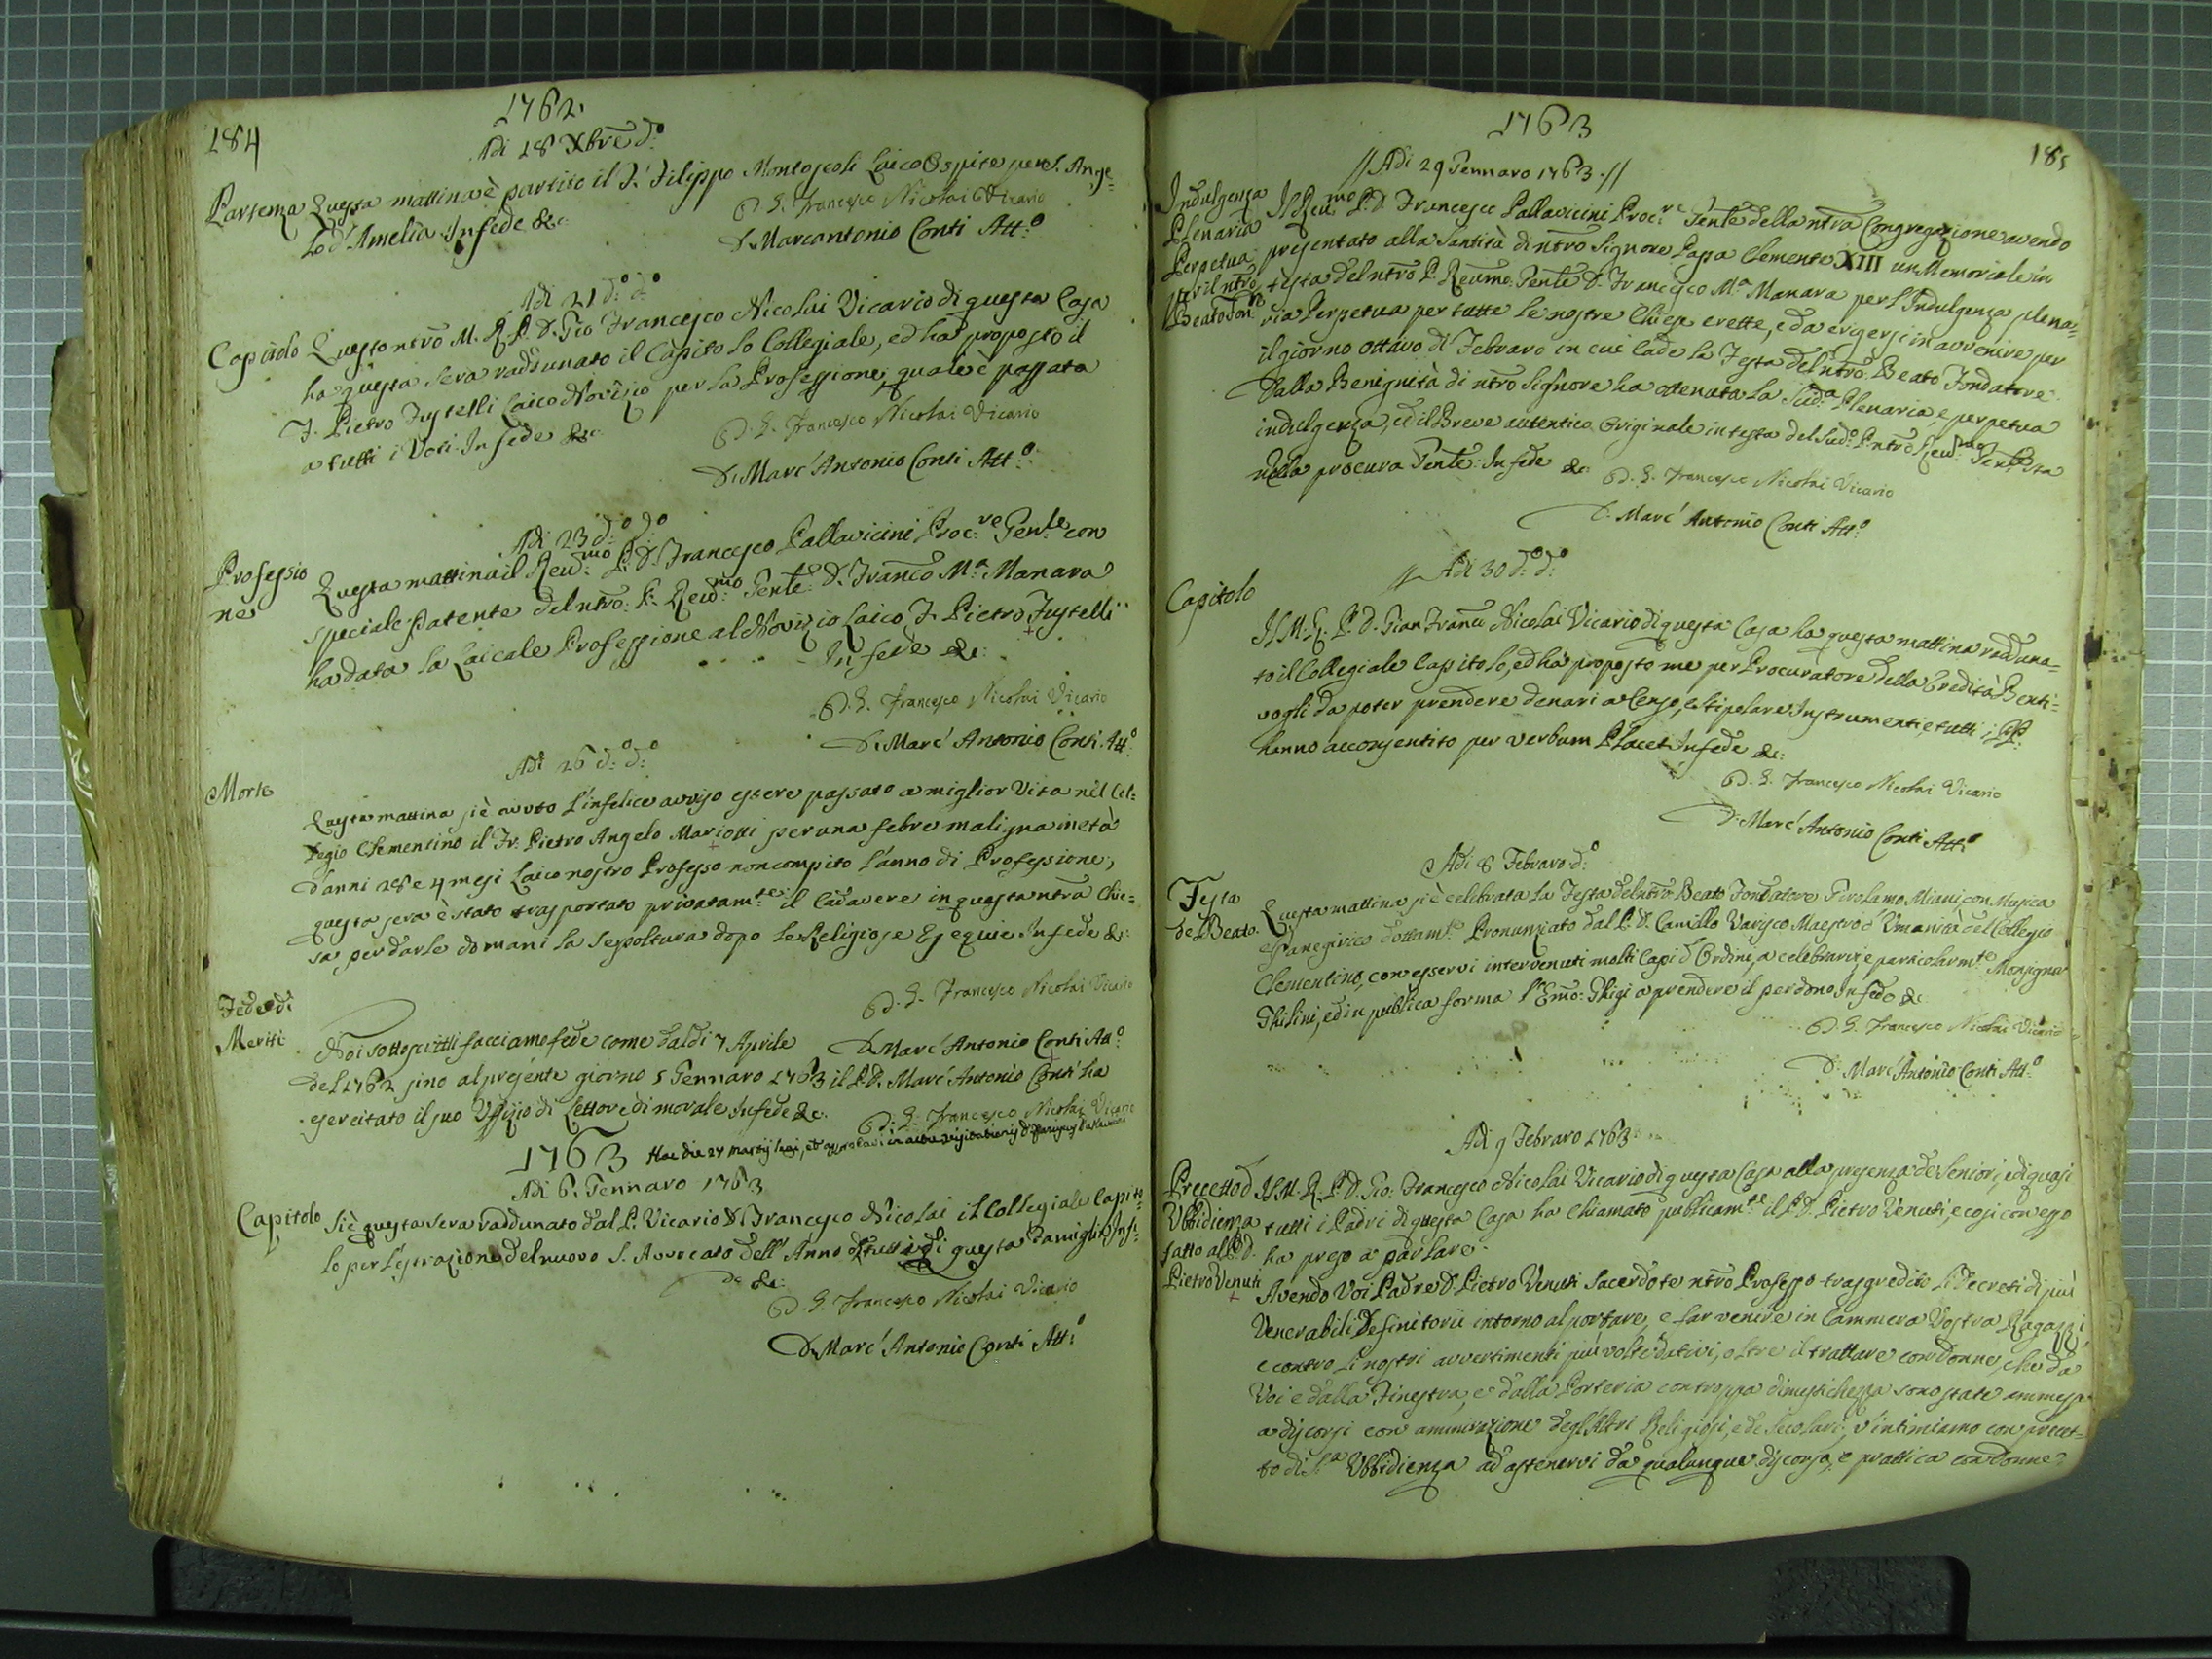 184
1762
Adi 18 Xbre d:o
Partenza Questa mattina è partito il F. Filippo Montojcoli Laico Ospite per S. Ange-
lo d'Amelia. In fede &c:
D. G. Francesco Nicolai Vicario
D. Marcantonio Conti Att:o
Adi 21 d:o d:o
Capitolo Questo ntro M. R. P. D. Gio Francesco Nicolai Vicario di questa Casa
ha questa sera raddunato il Capitolo Collegiale, ed ha proposto il
F. Pietro Fustelli Laico Novizio per la Professione, quale è passata
a tutti i Voti. In fede &c:
D. G. Francesco Nicolai Vicario
D. Marc' Antonio Conti Att:o
Adi 23 d:o d:o
Professio
ne
Questa mattina il Reud:mo P. D. Francesco Pallavicini Proc:re Gen:le con
speciale Patente del ntro: P. Reud:mo Gen:le D. Franco M:a Manara
ha data la Laicale Professione al Novizio Laico F. Pietro Fustelli
In fede &c:
D. G. Francesco Nicolai Vicario
D. Marc' Antonio Conti Att:o
Adi 26 d:o d:o
Morte
Questa mattina si è avuto l'infelice avviso essere passato a miglior Vita nel Col-
legio Clementino il Fr. Pietro Angelo Mariotti per una febre maligna in età
d'anni 28 e 4 mesi Laico nostro Professo non compito l'anno di Professione,
questa sera è stato trasportato privatam:te il Cadavere in questa ntra Chie-
sa, per darle domani la sepoltura dopo le Religiose Esequie. In fede &c:
D. G. Francesco Nicolai Vicario
D. Marc' Antonio Conti Att:o
Fede di
Meriti
Noi sottoscritti facciamo fede come dal di 7 Aprile
del 1762 sino al presente giorno 5 Gennaro 1763 il P. D. Marc' Antonio Conti ha
esercitato il suo Uffizio di Lettore di morale. In fede &c.
D. G. Francesco Nicolai Vicario
1763 Hac die 27 Martij legi, et approbavi in actu visitationis
Adi 6. Gennaro 1763
Capitolo Si è questa sera raddunato dal P. Vicario D. Francesco Nicolai il Collegiale Capito
lo per l'estrazione del nuovo S. Avvocato dell' Anno di questa Famiglia. In fe-
de &c:
D. G. Francesco Nicolai Vicario
D. Marc' Antonio Conti Att:o
185
1763
// Adi 29 Gennaro 1763. //
Indulgenza
Plenaria
Perpetua
per il ntro
Beato Fon:re
Il Reu:mo P. D. Francesco Pallavicini Proc:re Gen:le della ntra Congregazione avendo
presentato alla Santità di ntro Signore Papa Clemente XIII un Memoriale in
testa del ntro P. Reumo: Gen:le D. Francesco M:a Manara per l'Indulgenza plena-
ria Perpetua per tutte le nostre Chiese erette, e da erigersi in avvenire per
il giorno ottavo di Febraro in cui Cade la Festa del ntro: Beato Fondatore.
Dalla Benignità di ntro Signore ha ottenuta la Sud:a Plenaria, e perpetua
indulgenza, ed il Breve autentico Originale in testa del Sud:o P. ntro Reud:mo Gen:le sta
nella procura Gen:le: In fede &c:
D. G. Francesco Nicolai Vicario
D. Marc' Antonio Conti Att:o
// Adi 30 d:o d:o
Capitolo
Il M. R. P. D. Gian Franco Nicolai Vicario di questa Casa ha questa mattina raduna-
to il Collegiale Capitolo, ed ha proposto me per Procuratore della Eredità Benti-
vogli da poter prendere denari a Censo, e stipolare Instrumenti, e tutti i PP.
hanno acconsentito per verbum Placet. In fede &c:
D. G. Francesco Nicolai Vicario
D. Marc' Antonio Conti Att:o
Adi 8 Febraro d:o
Festa
del Beato.
Questa mattina si è celebrata la Festa del ntro: Beato Fondatore Girolamo Miani con Musica
e Panegirico dottam:te Pronunziato dal P. D. Camillo Varisco Maestro d' Umanità del Collegio
Clementino, con esservi intervenuti molti Capi d'Ordini, a celebrarvi, e particolarm:te Monsignor
Ghilini, ed in publica forma l'Emo: Ghigi a prendere il perdono. In fede &c
D. G. Francesco Nicolai Vicario
D. Marc' Antonio Conti Att:o
Adi 9 Febraro 1763
Precetto d'
Ubbidienza
fatto al P. D.
Pietro Venuti
Il M. R. P. D. Gio: Francesco Nicolai Vicario di questa Casa alla presenza de Seniori, e di quasi
tutti i Padri di questa Casa ha chiamato publicam:te il P. D. Pietro Venuti, e così con esso
ha preso a parlare.
Avendo Voi Padre D. Pietro Venuti Sacerdote ntro Professo trasgredito li Decreti di più
Venerabili Definitorii intorno al portare, e far venire in Cammera Vostra Ragazzi,
e contro li nostri avvertimenti più volte dativi, oltre il trattare con donne, che da
Voi e dalla Finestra, e dalla Porteria con troppa dimestichezza sono state ammesse
a discorsi con ammirazione degl'Altri Religiosi, e de Secolari, v'intimiamo con precet-
to di S.a Ubbidienza ad astenervi da qualunque discorso, e prattica con donne